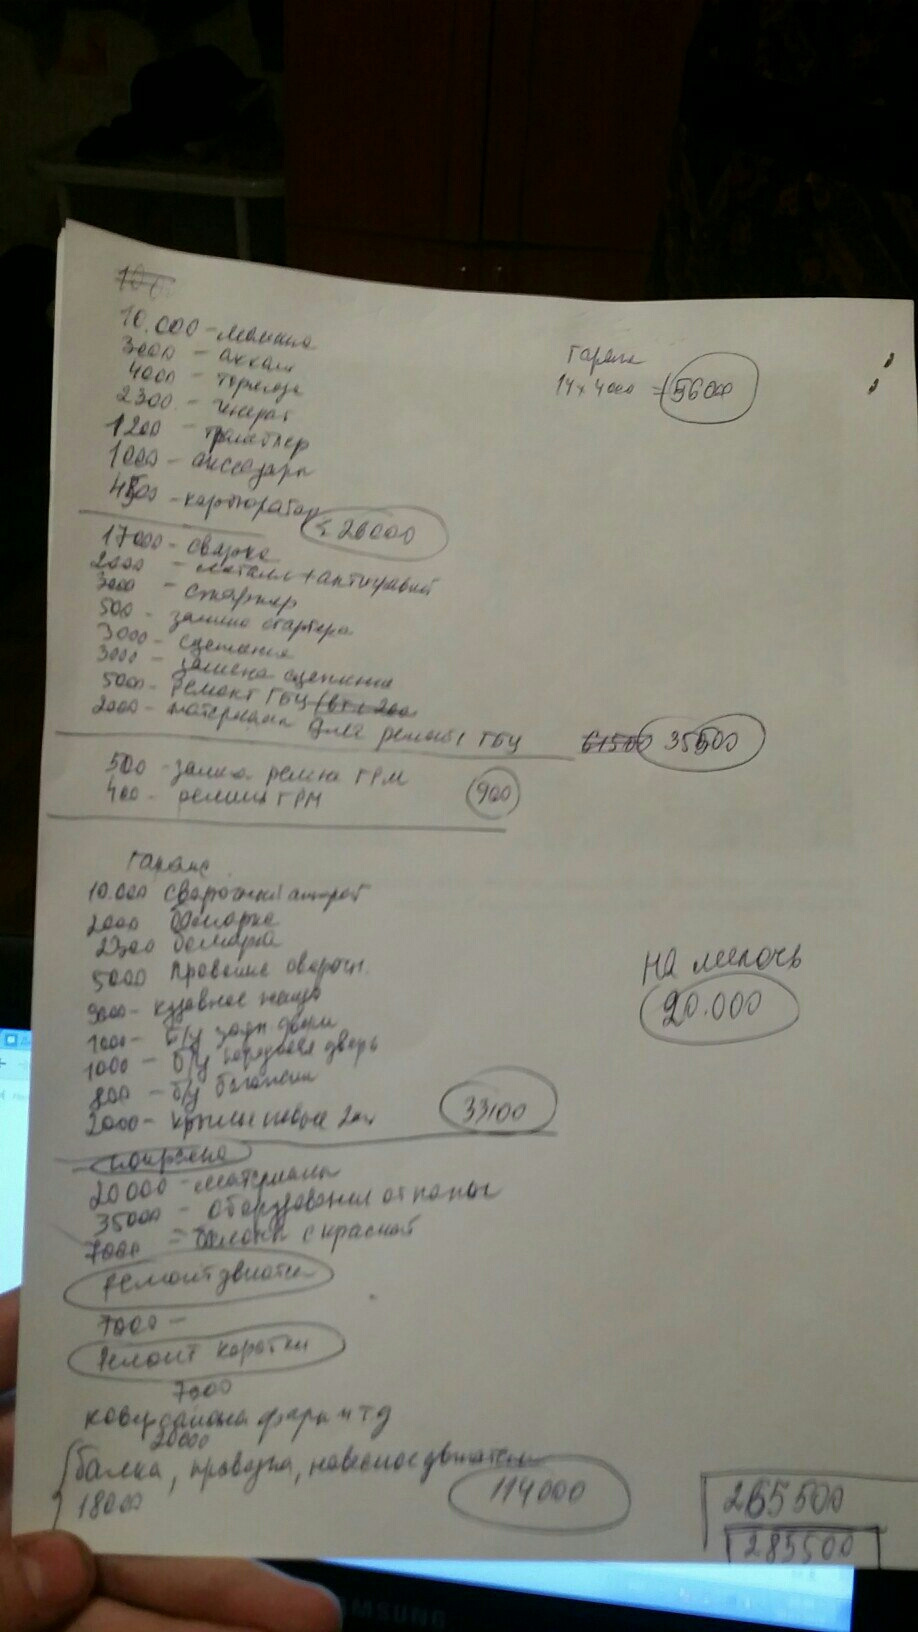 10.000 - машина
3000 - аккам
4000 - тормоза
2300 - генерат
1200 - трамблер
1000 - аксесуары
4500 - карбюратор
26000
гараж
14 x 4000 = 5600
17000 - сварка
2000 - металл + антигравий
3000 - стартер
500 - замена стартера
3000 - сцепление
3000 - замена сцепление
5000 - Ремонт ГБЦ
2000 - материалы для ремонта ГБЦ
61500 35500
500 - замена ремня ГРМ
400 - ремень ГРМ
900
Гараж
10.000 сварочный аппарат
2000 болгарка
2300 болгарка
5000 сварочн.
9000 - кузовное
1000 - б/у задн двери
1000 - б/у передняя дверь
800 - б/у багажник
2000 - крылья новые 2шт
33100
На мелочь
20.000
покраска
20000 - материалы
35000 - оборудование
7000 - балоны с краской
Ремонт двигателя
7000 -
Ремонт коробки
7000
ковер салона фары и тд
20000
балка, проводка, навесное двигателя
18000
114000
265500
285500
SAMSUNG